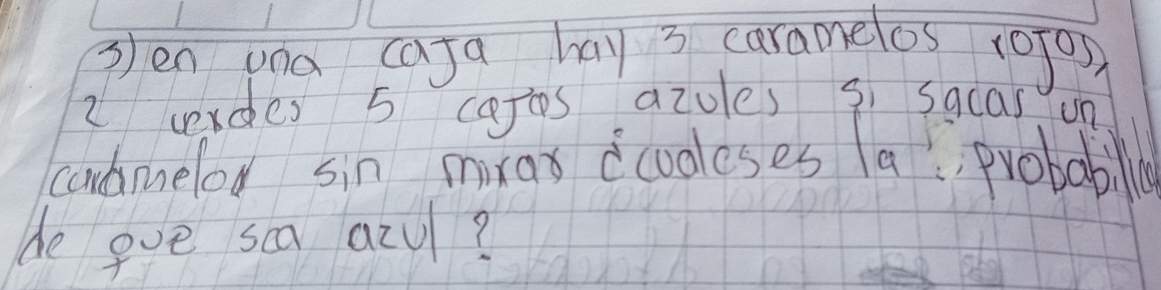 3) en una caja hay 3 caramelos rojos,
2 verdes 5 cajas azules si sacas un
caramelo sin mirar ¿cuales es la probabilidad
de que sea azul?